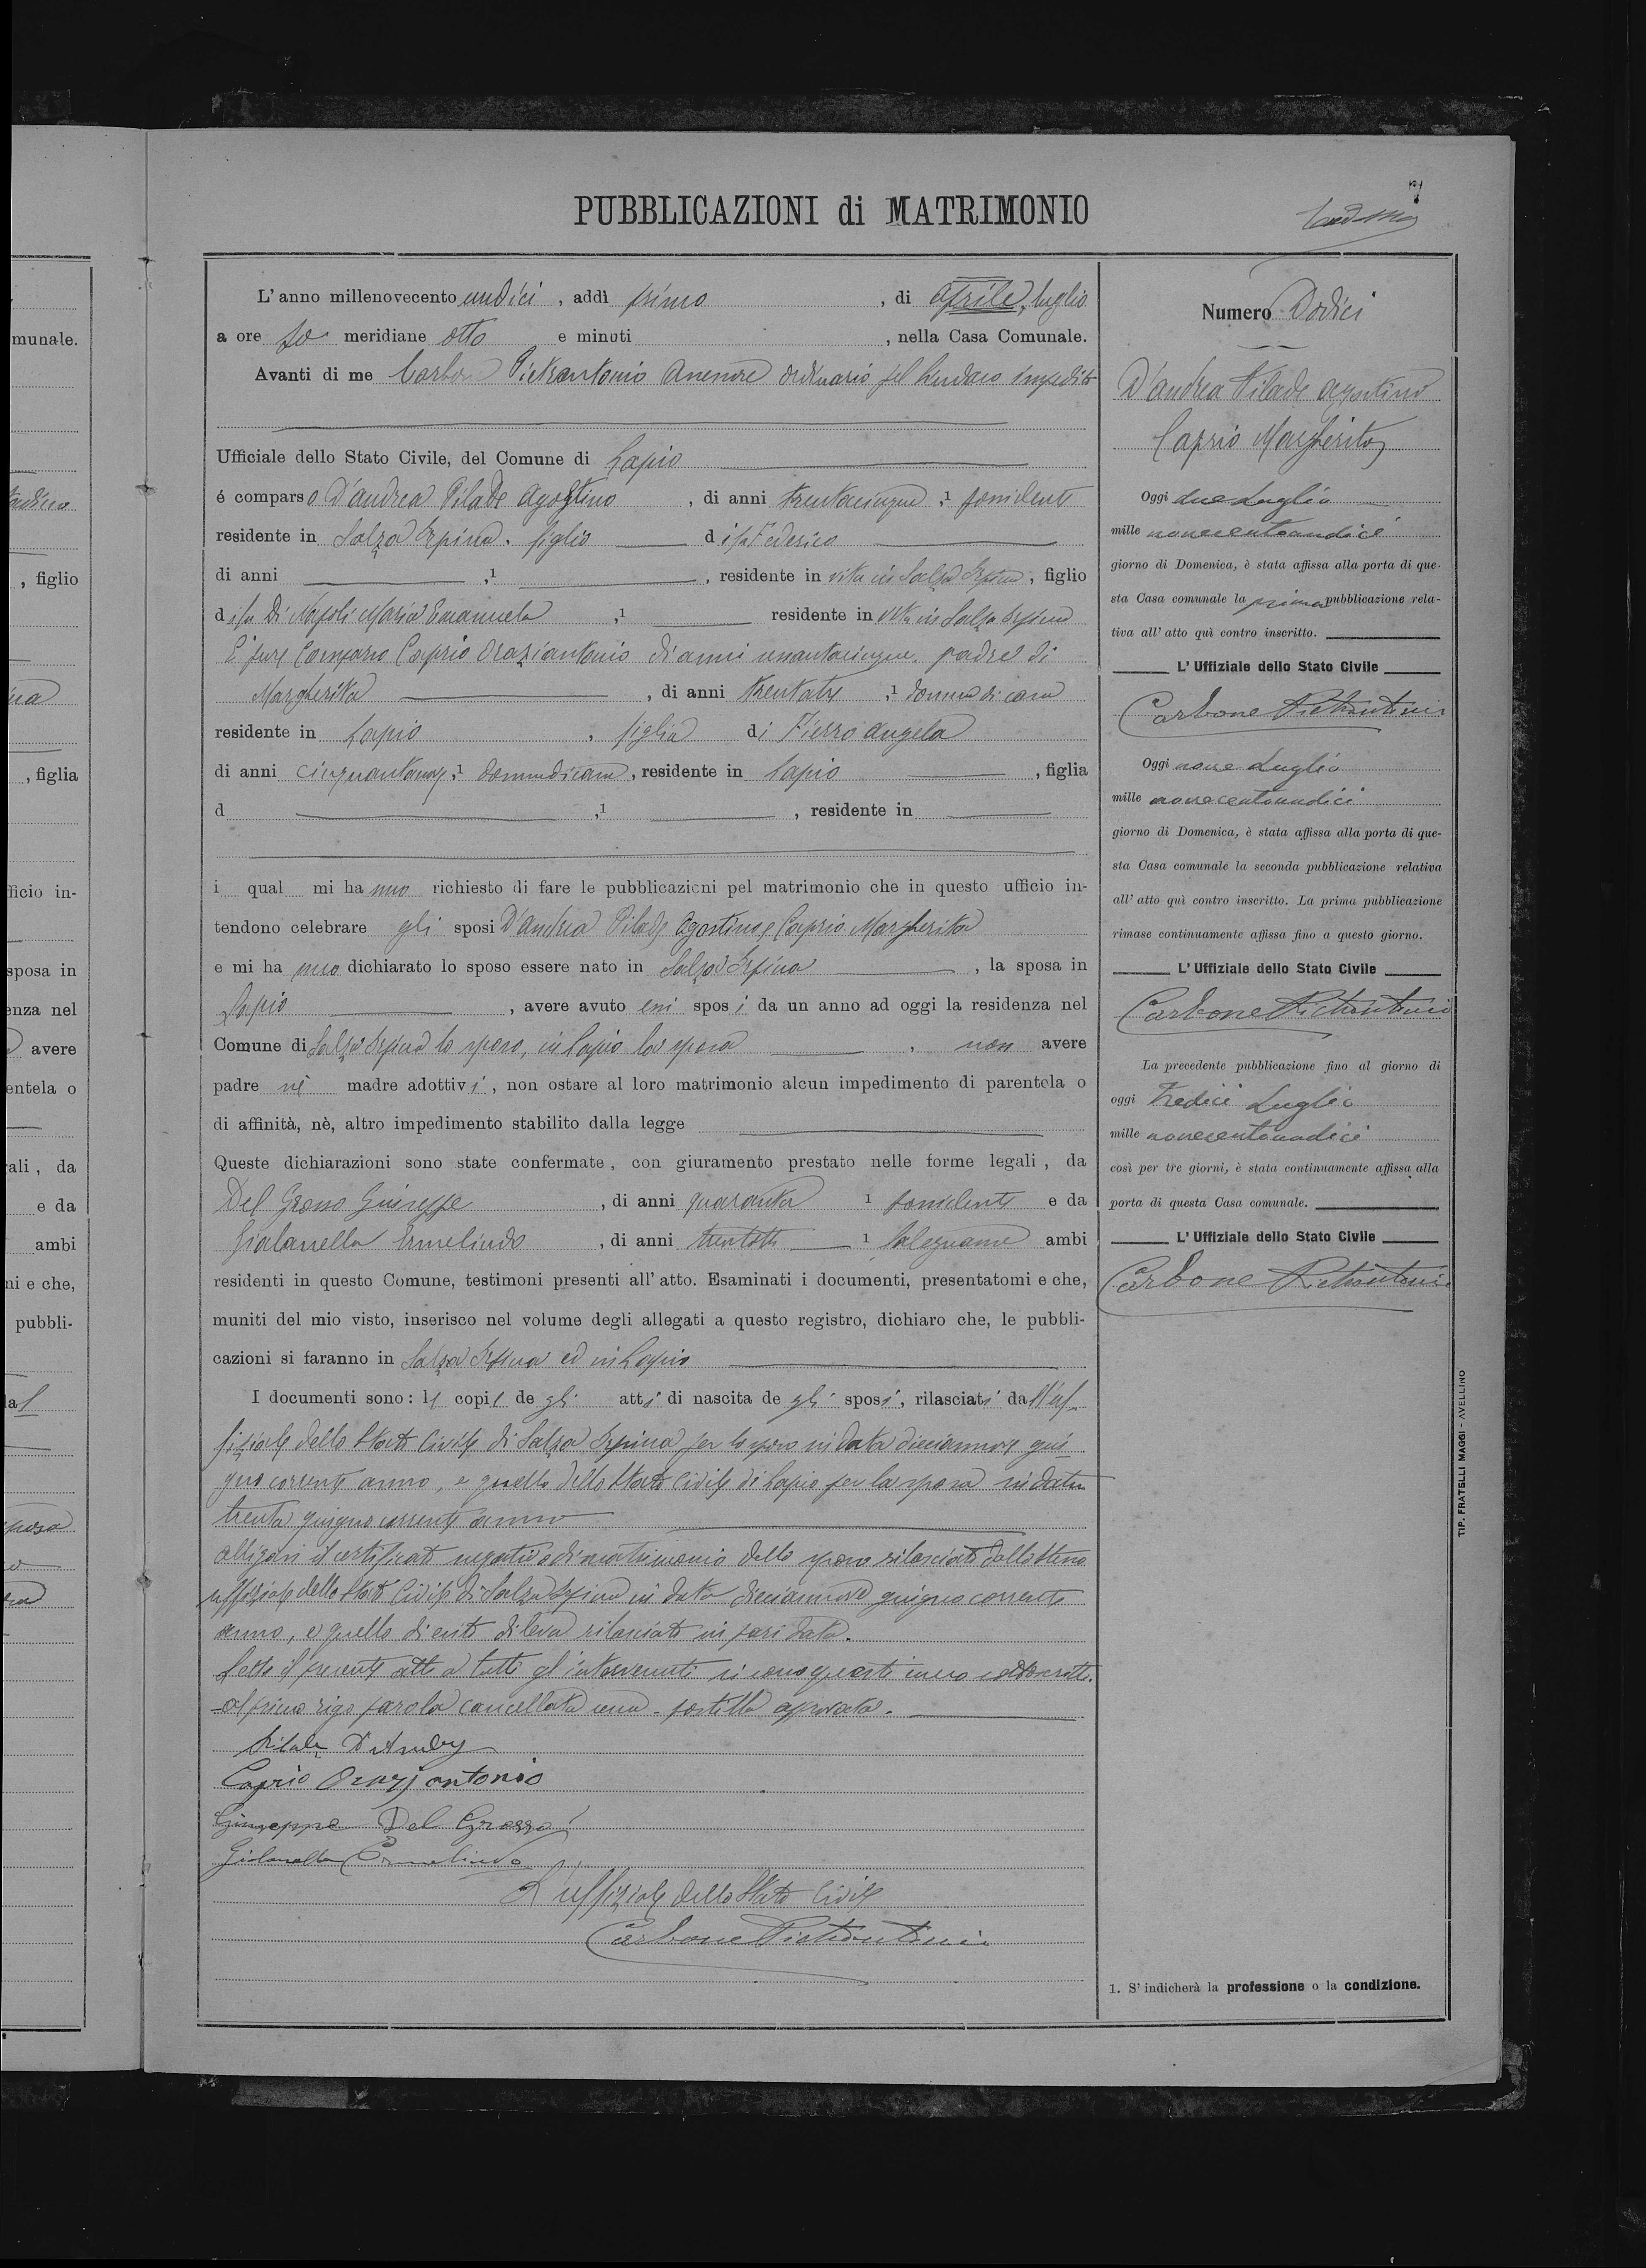 munale.
, figlio
, figlia
fficio in-
sposa in
enza nel
avere
entela o
ali, da
e da
ambi
ni e che,
pubbli-
sposa
7
PUBBLICAZIONI di MATRIMONIO
L'anno millenovecento undici , addì primo , di aprile, luglio
a ore po meridiane otto e minuti , nella Casa Comunale.
Avanti di me Carbone Pietrantonio assessore ordinario pel sindaco impedito
Ufficiale dello Stato Civile, del Comune di Lapio
é comparso D'andrea Pilade Agostino , di anni trentacinque ,1 possidente
residente in Salza Irpina, figlio di fu Federico
di anni ,1 , residente in vita in Salza Irpina, figlio
di fu Di Napoli Maria Emanuela ,1 residente in vita in Salza Irpina
È pure comparso Caprio Oraziantonio di anni padre di
Margherita , di anni trentatre ,1 donna di casa
residente in Lapio , figlia di Fierro Angela
di anni ,1 donna di casa, residente in Lapio , figlia
d ,1 , residente in
i qual mi ha nno richiesto di fare le pubblicazioni pel matrimonio che in questo ufficio in-
tendono celebrare gli sposi D'andrea Pilade Agostino e Caprio Margherita
e mi ha nno dichiarato lo sposo essere nato in Salza Irpina , la sposa in
Lapio , avere avuto essi spos i da un anno ad oggi la residenza nel
Comune di Salza Irpina lo sposo, in Lapio la sposa , non avere
padre nè madre adottiv i, non ostare al loro matrimonio alcun impedimento di parentela o
di affinità, nè, altro impedimento stabilito dalla legge
Queste dichiarazioni sono state confermate, con giuramento prestato nelle forme legali, da
Del Grosso Giuseppe , di anni quaranta 1 possidente e da
Gialanella Ermelindo , di anni trentotto 1 falegname ambi
residenti in questo Comune, testimoni presenti all'atto. Esaminati i documenti, presentatomi e che,
muniti del mio visto, inserisco nel volume degli allegati a questo registro, dichiaro che, le pubbli-
cazioni si faranno in Salza Irpina ed in Lapio
I documenti sono: le copie de gli atti di nascita de gli sposi, rilasciati dall'uf-
fiziale dello Stato Civile di Salza Irpina per lo sposo in data diciannove giu-
gno corrente anno, e quello dello Stato Civile di Lapio per la sposa in data
trenta giugno corrente anno
alligasi il certificato negativo di matrimonio dello sposo rilasciato dallo stesso
uffiziale dello Stato Civile di Salza Irpina in data diciannove giugno corrente
anno, e quello di esito di leva rilasciato in pari data.
Letto il presente atto a tutti gl'intervenuti si sono questi meco sottoscritti.
al primo rigo parola cancellata una. postilla approvata.
Pilade D'Andrea
Caprio Orazj antonio
Giuseppe Del Grosso
Gialanella Ermelindo
L'uffiziale dello Stato Civile
Carbone Pietrantonio
Numero Dodici
D'andrea Pilade Agostino
Caprio Margherita
Oggi due Luglio
mille novecentoundici
giorno di Domenica, è stata affissa alla porta di que-
sta Casa comunale la prima pubblicazione rela-
tiva all'atto quì contro inscritto.
L'Uffiziale dello Stato Civile
Carbone Pietrantonio
Oggi nove Luglio
mille novecentoundici
giorno di Domenica, è stata affissa alla porta di que-
sta Casa comunale la seconda pubblicazione relativa
all'atto quì contro inscritto. La prima pubblicazione
rimase continuamente affissa fino a questo giorno.
L'Uffiziale dello Stato Civile
Carbone Pietrantonio
La precedente pubblicazione fino al giorno di
oggi tredici Luglio
mille novecentoundici
così per tre giorni, è stata continuamente affissa alla
porta di questa Casa comunale.
L'Uffiziale dello Stato Civile
Carbone Pietrantonio
1. S'indicherà la professione o la condizione.
TIP. FRATELLI MAGGI - AVELLINO